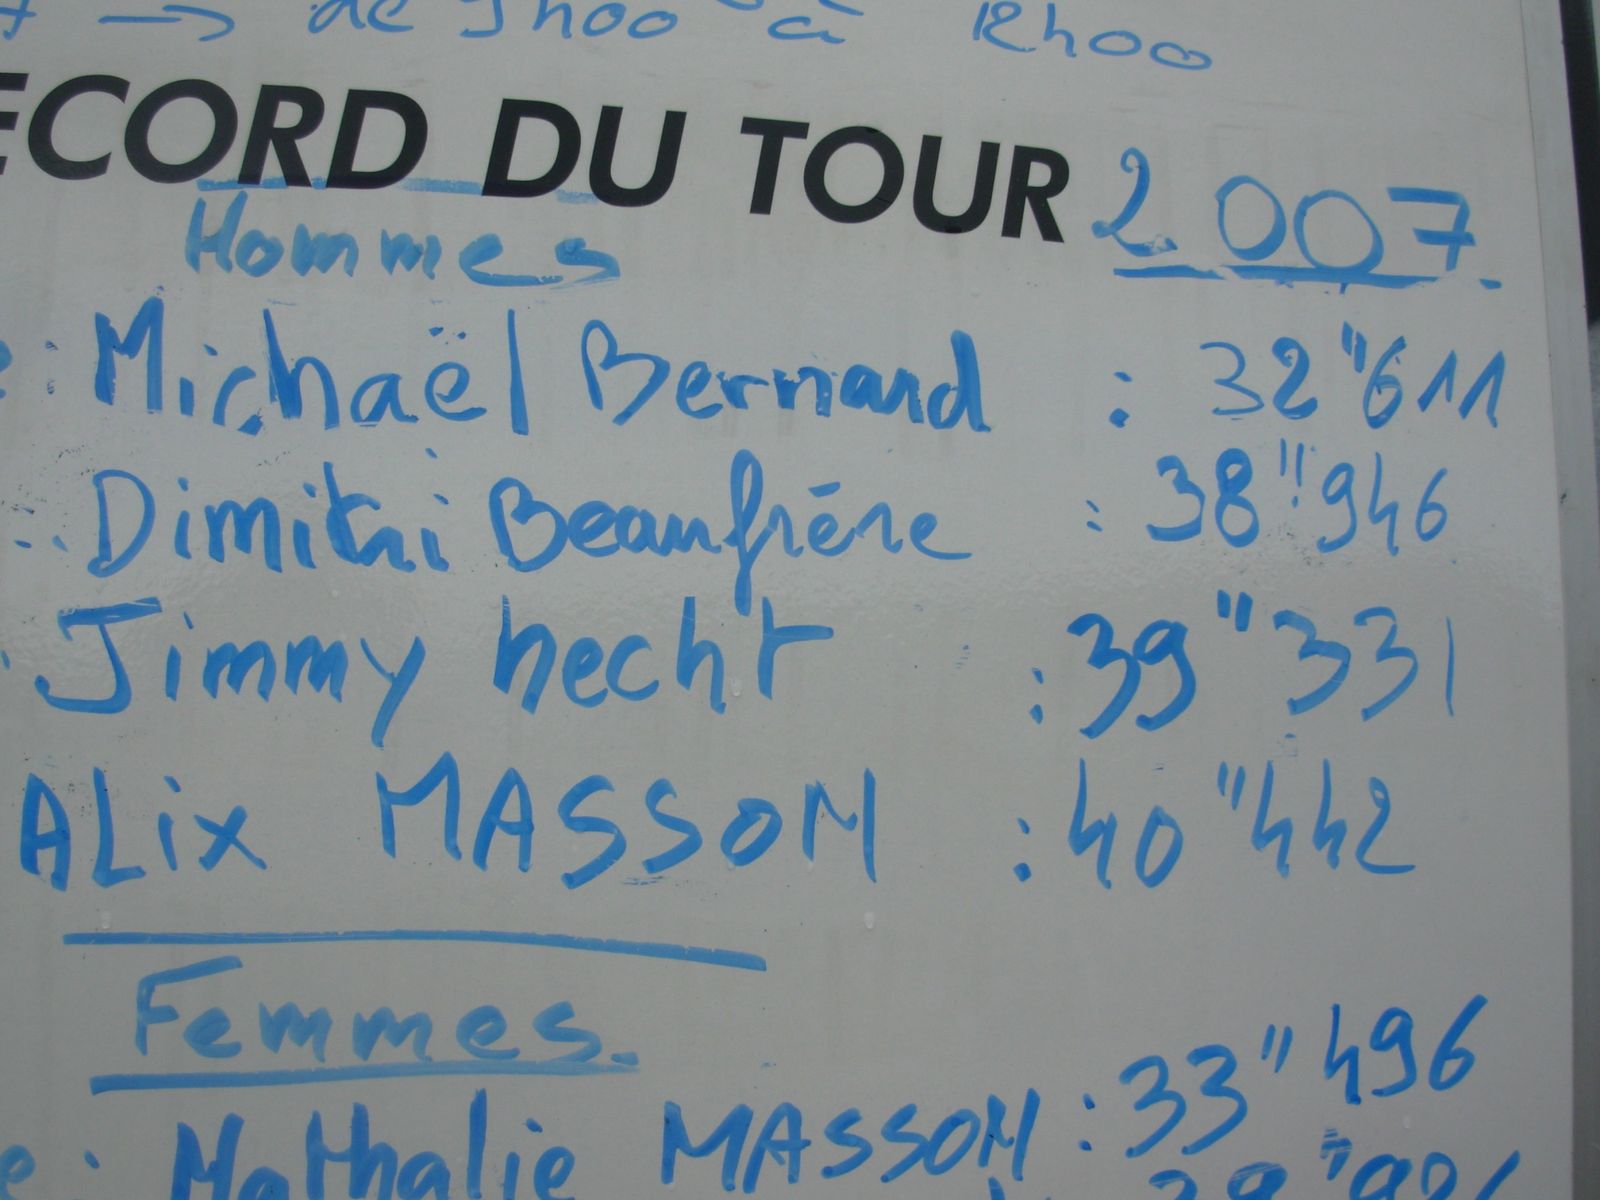 → de 9h00 à 12h00
ECORD DU TOUR 2007
Hommes
e : Michaël Bernard : 32"611
: Dimitri Beaufrère : 38"946
Jimmy hecht : 39"331
ALix MASSON : 40"442
Femmes.
e . Nathalie MASSON : 33"496